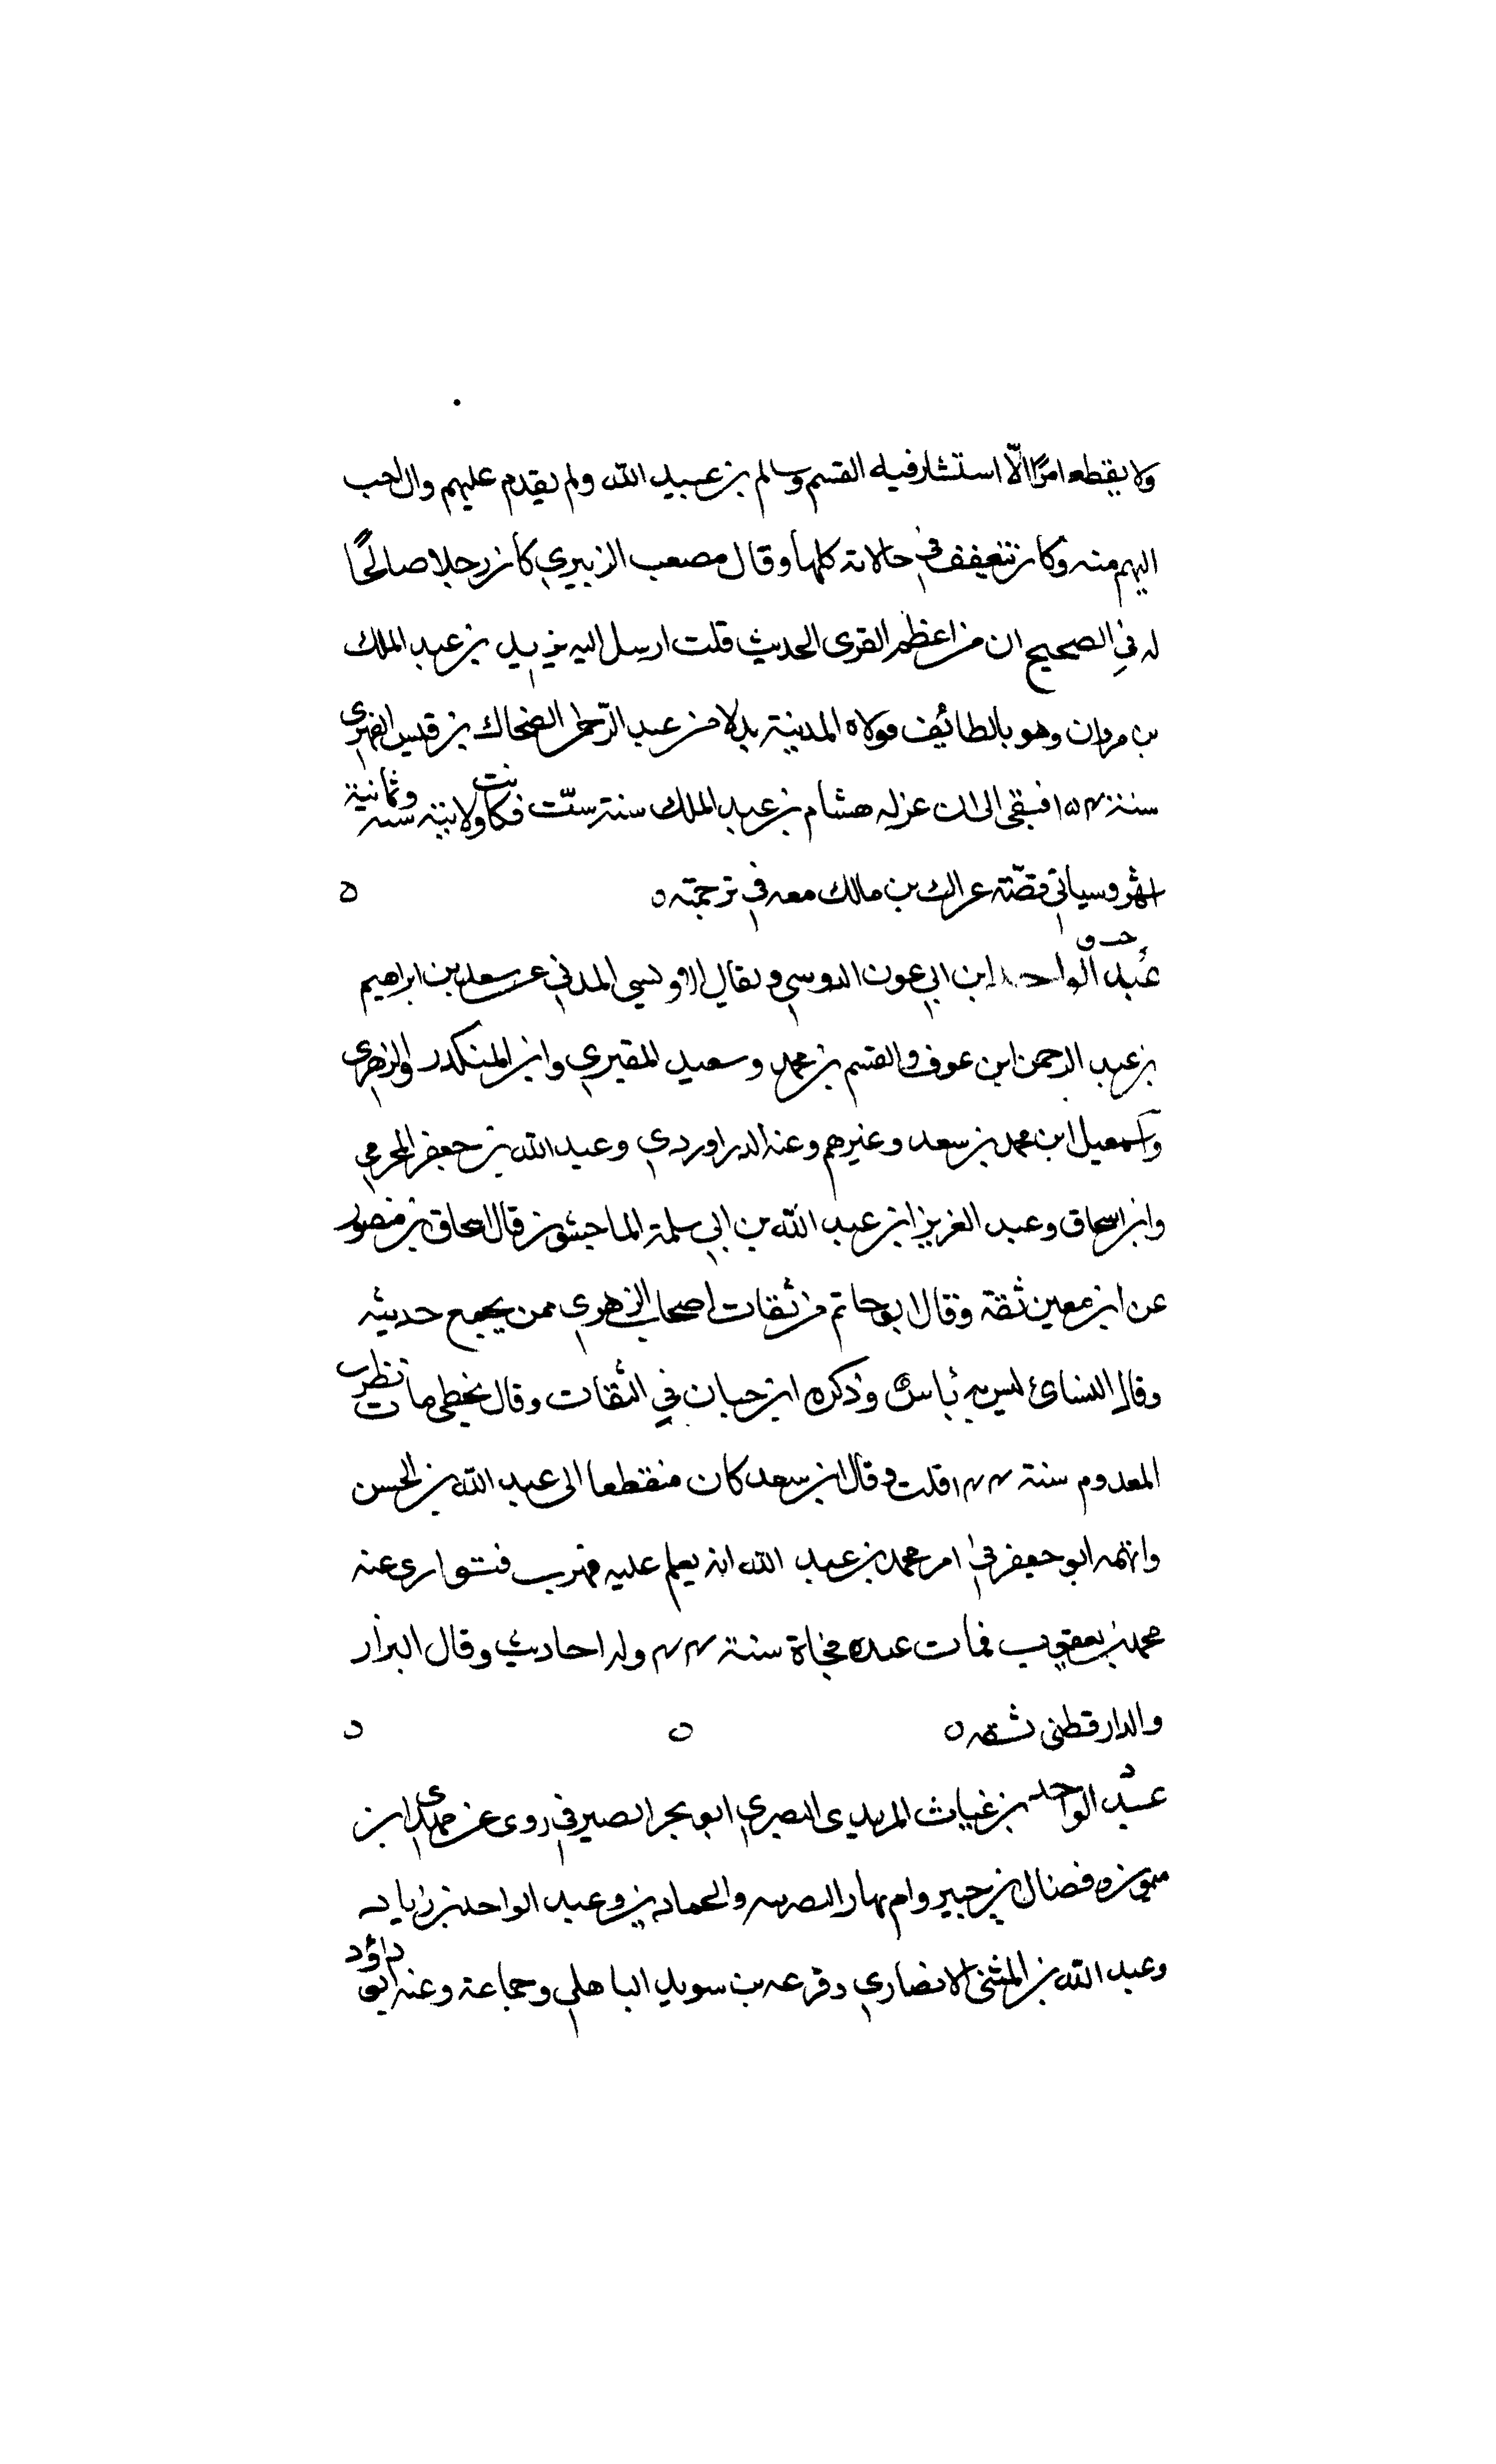 ولا يقطع امرًا الّا استشار فيه القسم وسالم بن عبيد الله ولم يقدم عليهم وال احب
اليهم منه وكان يتعفف في حالاته كلها وقال مصعب الزبيري كان رجلا صالحًا
له في الصحيح ان من اعظم القرى الحديث قلت ارسل اليه يزيد بن عبد الملك
بن مروان وهو بالطائف فولاه المدينة بدلا من عبد الرحمن الضحاك بن قيس الفهري
سنة ١٥٤ فبقي الى ان عزله هشام بن عبد الملك سنة ستّ فكانت ولايته سنه وثمانية
اشهر وسياتي قصّته عراك بن مالك معه في ترجمته ٥ ٥
عبد الواحد ابن ابي عون الدوسي ويقال الاويسي المدني عن سعد بن ابراهيم
بن عبد الرحمن ابن عوف والقسم بن محمد وسعيد المقبري وابن المنكدر والزهري
واسمعيل ابن محمد بن سعد وغيرهم وعنه الدراوردي وعبد الله بن جعفر المخرمي
وابن اسحاق وعبد العزيز ابن عبد الله بن ابي سلمة الماجشون قال اسحاق بن منصور
عن ابن معين ثقة وقال ابو حاتم من ثقات اصحاب الزهري ممن يجمع حديثه
وقال النسائ ليس به باس وذكره ابن حبان في الثقات وقال يخطي مات
المعدوم سنة ١٤٤ قلت وقال ابن سعد كان منقطعا الى عبد الله بن الحسن
واتهمه ابو جعفر في امر محمد بن عبد الله انه يعلم عليه فهرب فتوارى عنه
محمد بن يعقوب فمات عنده فجاة سنة ٤٤ وله احاديث وقال البزار
والدارقطنى ثقه ٥ ٥ ٥
عبد الواحد بن غياث المربدى البصري ابو بحر الصيرفي روى عن مهدى ابن
ميمون وفضال بن جبير وام نهار البصريه والحمادين وعبد الواحد بن زياد
وعبد الله بن المثنى الانصاري وقزعه بن سويد الباهلي وجماعة وعنه ابو داؤد